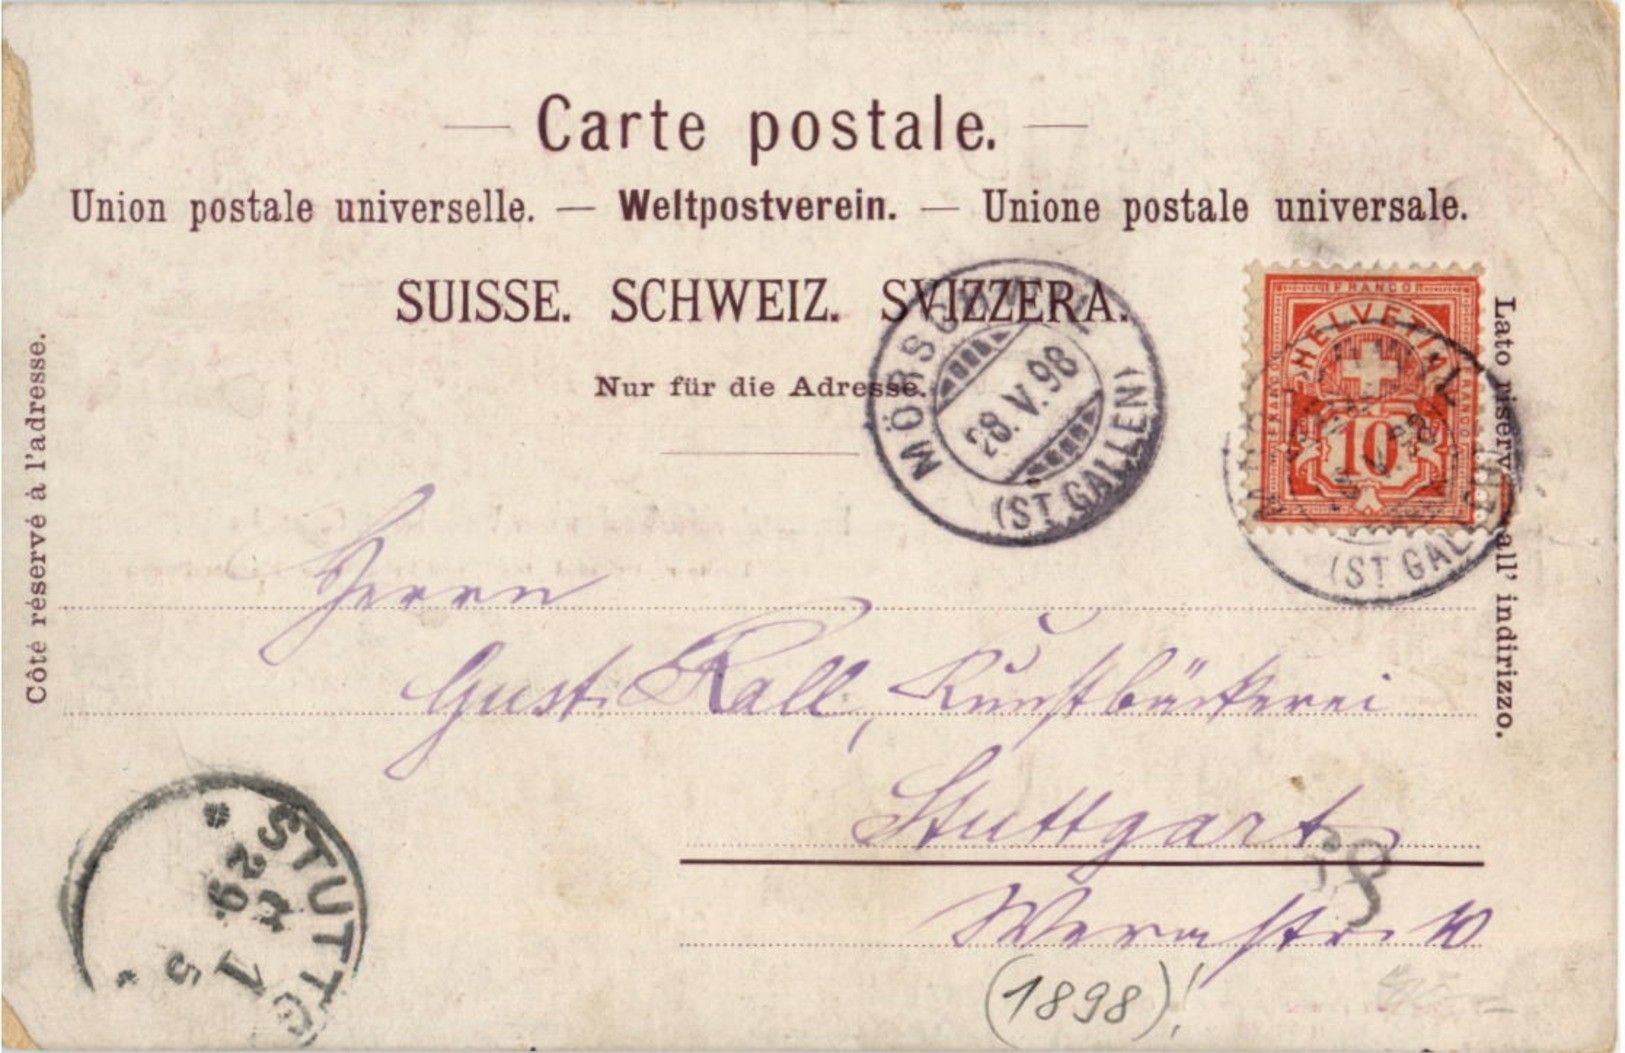 Carte postale.
Union postale universelle. — Weltpostverein. — Unione postale universale.
SUISSE. SCHWEIZ. SVIZZERA.
Nur für die Adresse.
Côté réservé à l'adresse.
Lato riservato all' indirizzo.
FRANCO
HELVETIA
FRANCO
FRANCO
10
28.V.98
(ST. GALLEN)
(ST. GALLEN)
Herrn
Gust. Rall, Kunstbäckerei
Stuttgart
Wernstr. 10
(1898)!
STUTTG
29
5